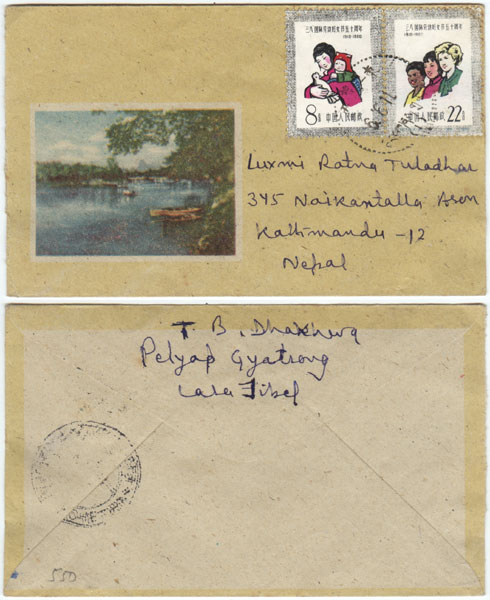 三八国际劳动妇女节五十周年
1910-1960
8分 中国人民邮政
三八国际劳动妇女节五十周年
1910-1960
中国人民邮政 22分
Luxmi Ratna Tuladhar
345 Naikantalla Ason
Kathmandu -12
Nepal
T. B. Dhakhwa
Pelyap Gyatsong
550